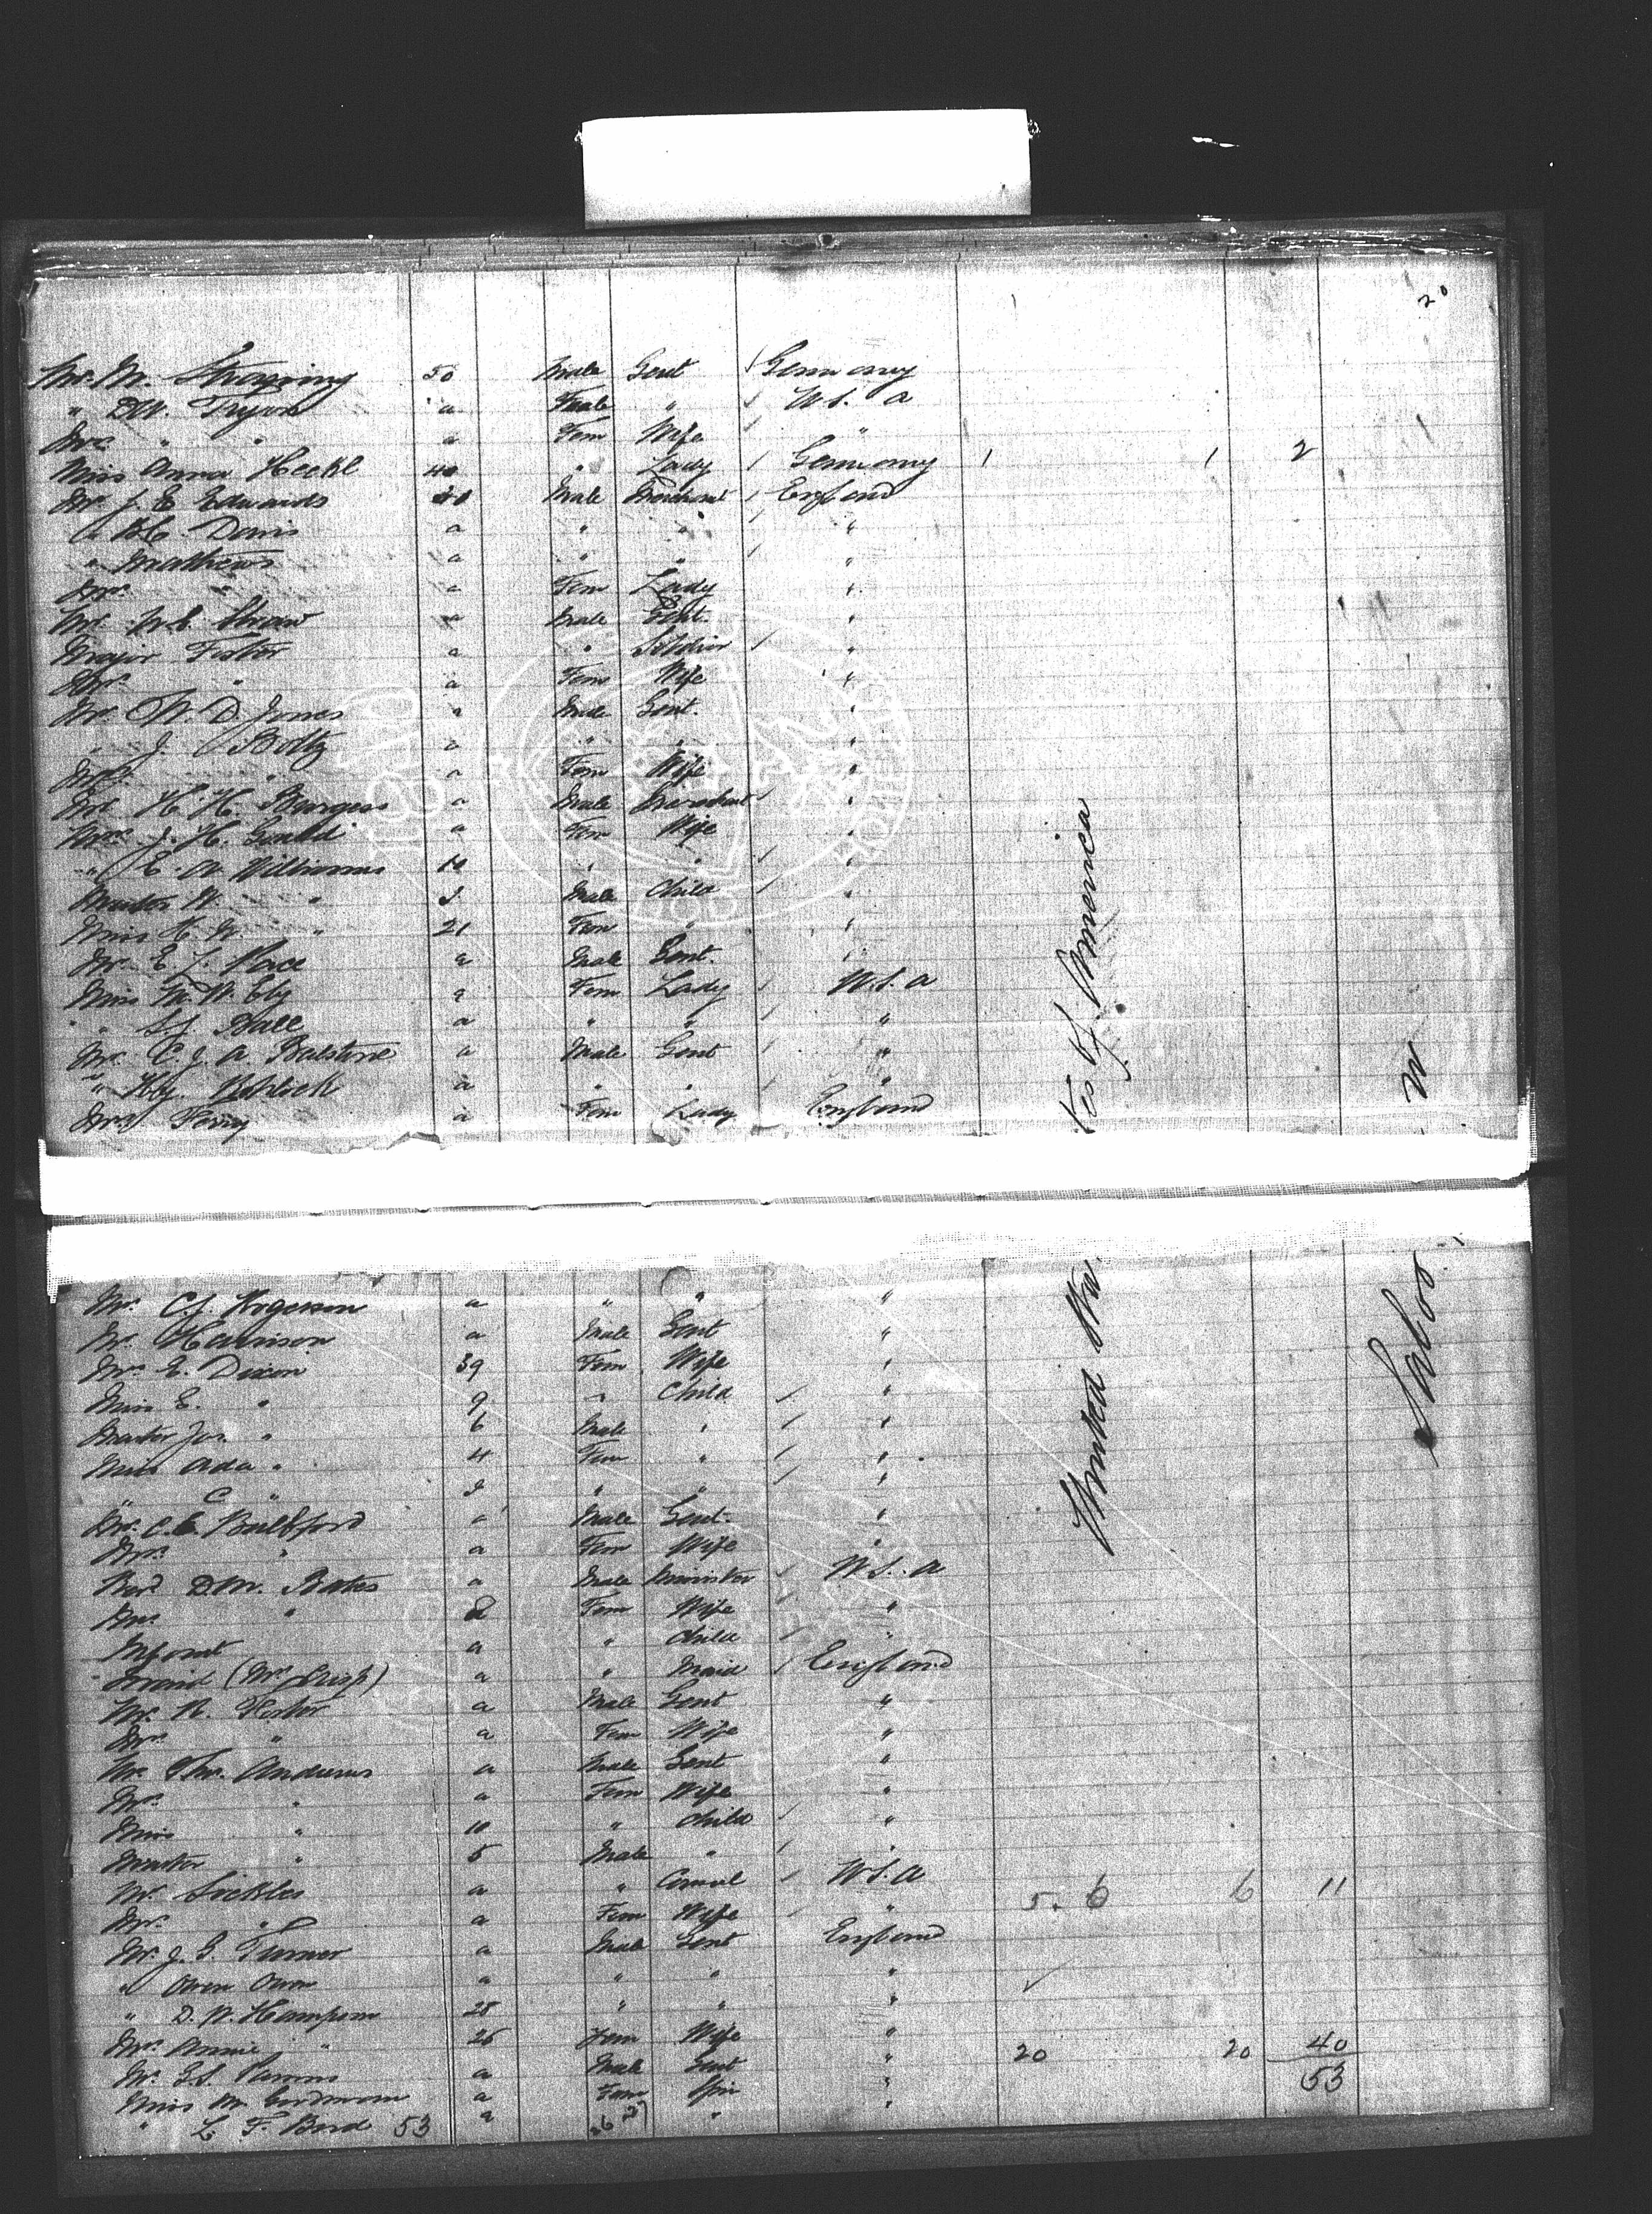 20
Mr. M. 50 Male Gent Germany
" D.W. Tryon a Male " U.S. a
Mrs. " " a Fem Wife "
Miss Anna Heckl 40 " Lady Germany 1 1 2
Mr. J. E. Edwards 40 Male Merchant England
" Davis a " " "
" Mathews a " " "
Mrs. " a Fem Lady "
Mr. Shaw a Male Gent. "
Major Foster a " Soldier "
Mrs. " a Fem Wife "
Mr. W. D. Jones a Male Gent. "
" J. Boltz a " " "
Mrs. " a Fem Wife "
Mr. H. H. Burgess a Male Merchant "
Mrs. J. H. Gould a Fem Wife "
" E. A. Williams 10 " " "
Master W. " Male Child "
Miss H. W. " 21 Fem " "
Mr. E. L. Pace a Male Gent. "
Miss M. W. Ely a Fem Lady U.S. a
" S. J. Hall a " " "
Mr. C. J. A. a Male Gent "
" Hy. a " " "
Mrs. Terry a Fem Lady England
Mrs. C. J. Rogerson a " " "
Mr. Harrison a Male Gent "
Mrs. E. Dixon 39 Fem Wife "
Miss E. " 9 " Child "
Master Jos. " 6 Male " "
Miss Ada " 4 Fem " "
" C " " " "
Mr. C. E. a Male Gent. "
Mrs. " a Fem Wife "
Revd. D. M. Bates a Male Minister U.S. a
Mrs. " a Fem Wife "
Infant a " Child "
Maid a " Maid England
Mr. R. Foster a Male Gent "
Mrs. " a Fem Wife "
Mr. Thos. Andrews a Male Gent "
Mrs. " a Fem Wife "
Miss " 10 " Child "
Master " 5 Male " "
Mr. Sickles a " Consul U.S. a 5. 6 6 11
Mrs. " a Fem Wife "
Mr. J. G. Turner a Male Gent England
" Owen Owen a " " "
" D. W. Hampson 28 " " "
Mrs. Annie " 26 Fem Wife "
Mr. G. S. a Male Gent " 20 20 40
Miss M. a Fem Spin " 53
" L. F. Bird 53 a 26 27 " "
United States of America
Saloon